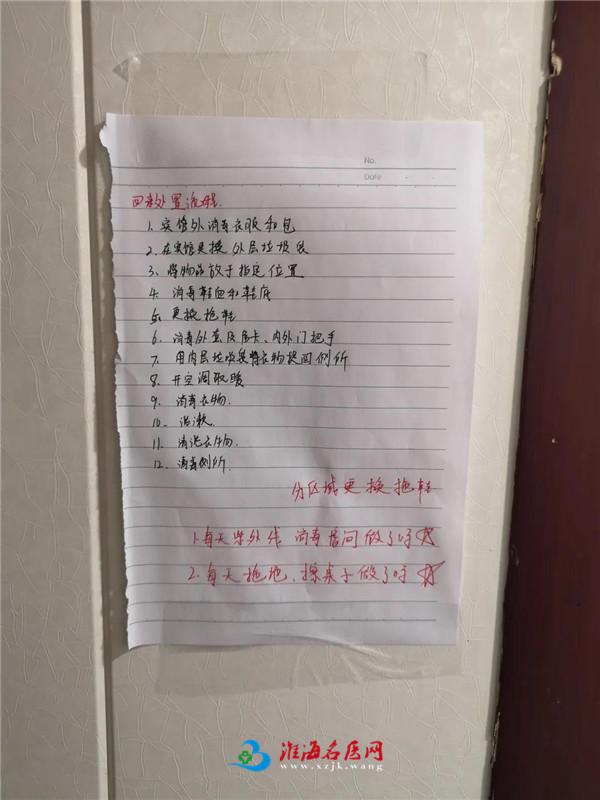 No.
Date
回来处置流程.
1. 宾馆外消毒衣服和包
2. 在宾馆更换外层垃圾袋
3、将物品放于指定位置
4. 消毒鞋面和鞋底
5. 更换拖鞋
6. 消毒外套及房卡、内外门把手
7. 用内层垃圾袋将衣物提回侧所
8. 开空调取暖
9. 消毒衣物.
10. 洗漱.
11. 清洗衣物.
12. 消毒侧所.
分区域更换拖鞋
1.每天紫外线 消毒房间做了吗☆
2.每天拖地、擦桌子做了吗☆
淮海名医网
www.xzjk.wang